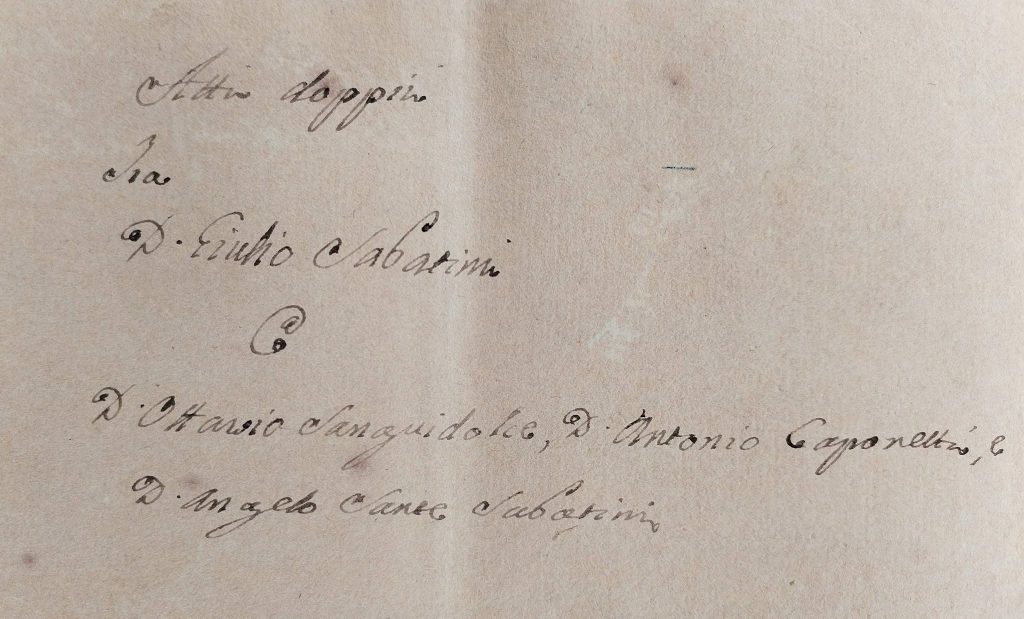 Atti doppii
Fra
D. Giulio Sabatini
E
D. Ottavio Sanguidolce, D. Antonio Caporelli, e
D. Angelo Sante Sabatini